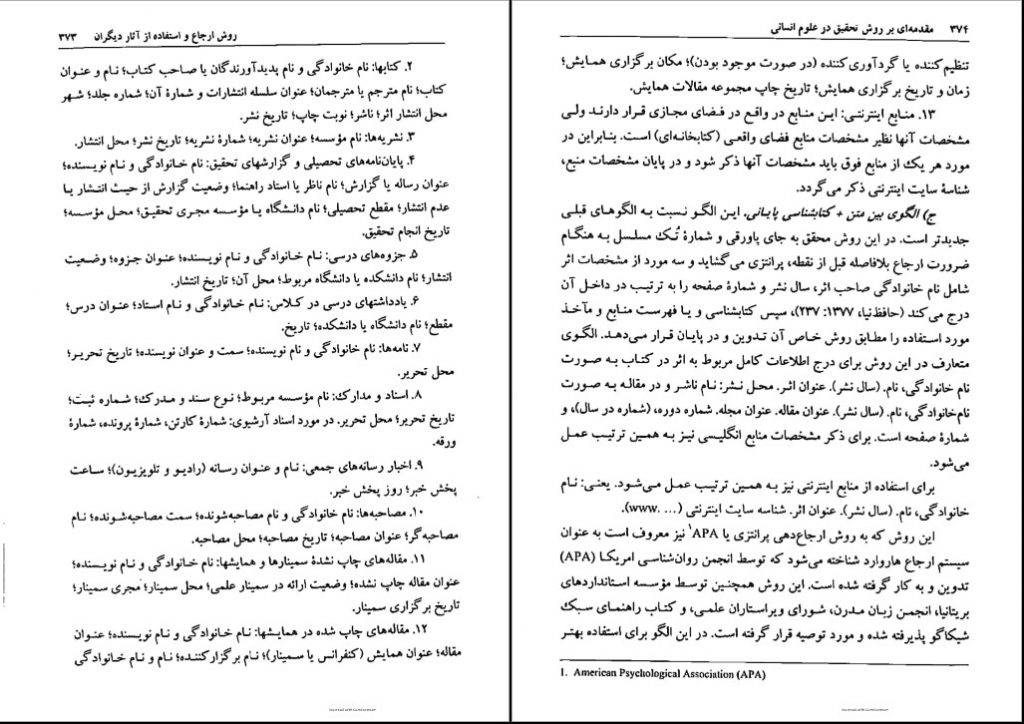 روش ارجاع و استفاده از آثار دیگران ۳۷۳
۲. کتابها: نام خانوادگی و نام پدیدآورندگان یا صاحب کتاب؛ نام و عنوان
کتاب؛ نام مترجم یا مترجمان؛ عنوان سلسله انتشارات و شمارهٔ آن؛ شماره جلد؛ شهر
محل انتشار اثر؛ ناشر؛ نوبت چاپ؛ تاریخ نشر.
۳. نشریه‌ها: نام مؤسسه؛ عنوان نشریه؛ شمارهٔ نشریه؛ تاریخ نشر؛ محل انتشار.
۴. پایان‌نامه‌های تحصیلی و گزارشهای تحقیق: نام خانوادگی و نام نویسنده؛
عنوان رساله یا گزارش؛ نام ناظر یا استاد راهنما؛ وضعیت گزارش از حیث انتشار یا
عدم انتشار؛ مقطع تحصیلی؛ نام دانشگاه یا مؤسسه مجری تحقیق؛ محل مؤسسه؛
تاریخ انجام تحقیق.
۵. جزوه‌های درسی: نام خانوادگی و نام نویسنده؛ عنوان جزوه؛ وضعیت
انتشار؛ نام دانشکده یا دانشگاه مربوط؛ محل آن؛ تاریخ انتشار.
۶. یادداشتهای درسی در کلاس: نام خانوادگی و نام استاد؛ عنوان درس؛
مقطع؛ نام دانشگاه یا دانشکده؛ تاریخ.
۷. نامه‌ها: نام خانوادگی و نام نویسنده؛ سمت و عنوان نویسنده؛ تاریخ تحریر؛
محل تحریر.
۸. اسناد و مدارک: نام مؤسسه مربوط؛ نوع سند و مدرک؛ شماره ثبت؛
تاریخ تحریر؛ محل تحریر. در مورد اسناد آرشیوی: شمارهٔ کارتن، شمارهٔ پرونده، شمارهٔ
ورقه.
۹. اخبار رسانه‌های جمعی: نام و عنوان رسانه (رادیو و تلویزیون)؛ ساعت
پخش خبر؛ روز پخش خبر.
۱۰. مصاحبه‌ها: نام خانوادگی و نام مصاحبه‌شونده؛ سمت مصاحبه‌شونده؛ نام
مصاحبه‌گر؛ عنوان مصاحبه؛ تاریخ مصاحبه؛ محل مصاحبه.
۱۱. مقاله‌های چاپ نشدهٔ سمینارها و همایشها: نام خانوادگی و نام نویسنده؛
عنوان مقاله چاپ نشده؛ وضعیت ارائه در سمینار علمی؛ محل سمینار؛ مجری سمینار؛
تاریخ برگزاری سمینار.
۱۲. مقاله‌های چاپ شده در همایشها: نام خانوادگی و نام نویسنده؛ عنوان
مقاله؛ عنوان همایش (کنفرانس یا سمینار)؛ نام برگزارکننده؛ نام و نام خانوادگی
۳۷۴ مقدمه‌ای بر روش تحقیق در علوم انسانی
تنظیم‌کننده یا گردآوری‌کننده (در صورت موجود بودن)؛ مکان برگزاری همایش؛
زمان و تاریخ برگزاری همایش؛ تاریخ چاپ مجموعه مقالات همایش.
۱۳. منابع اینترنتی: این منابع در واقع در فضای مجازی قرار دارند ولی
مشخصات آنها نظیر مشخصات منابع فضای واقعی (کتابخانه‌ای) است. بنابراین در
مورد هر یک از منابع فوق باید مشخصات آنها ذکر شود و در پایان مشخصات منبع،
شناسهٔ سایت اینترنتی ذکر می‌گردد.
ج) الگوی بین متن + کتابشناسی پایانی. این الگو نسبت به الگوهای قبلی
جدیدتر است. در این روش محقق به جای پاورقی و شمارهٔ تُک مسلسل به هنگام
ضرورت ارجاع بلافاصله قبل از نقطه، پرانتزی می‌گشاید و سه مورد از مشخصات اثر
شامل نام خانوادگی صاحب اثر، سال نشر و شمارهٔ صفحه را به ترتیب در داخل آن
درج می‌کند (حافظ‌نیا، ۱۳۷۷: ۲۳۷)، سپس کتابشناسی و یا فهرست منابع و مآخذ
مورد استفاده را مطابق روش خاص آن تدوین و در پایان قرار می‌دهد. الگوی
متعارف در این روش برای درج اطلاعات کامل مربوط به اثر در کتاب به صورت
نام خانوادگی، نام. (سال نشر). عنوان اثر. محل نشر: نام ناشر و در مقاله به صورت
نام‌خانوادگی، نام. (سال نشر). عنوان مقاله. عنوان مجله. شماره دوره، (شماره در سال)، و
شمارهٔ صفحه است. برای ذکر مشخصات منابع انگلیسی نیز به همین ترتیب عمل
می‌شود.
برای استفاده از منابع اینترنتی نیز به همین ترتیب عمل می‌شود. یعنی: نام
خانوادگی، نام. (سال نشر). عنوان اثر. شناسه سایت اینترنتی (... .www).
این روش که به روش ارجاع‌دهی پرانتزی یا APA¹ نیز معروف است به عنوان
سیستم ارجاع هاروارد شناخته می‌شود که توسط انجمن روان‌شناسی امریکا (APA)
تدوین و به کار گرفته شده است. این روش همچنین توسط مؤسسه استانداردهای
بریتانیا، انجمن زبان مدرن، شورای ویراستاران علمی، و کتاب راهنمای سبک
شیکاگو پذیرفته شده و مورد توصیه قرار گرفته است. در این الگو برای استفاده بهتر
1. American Psychological Association (APA)